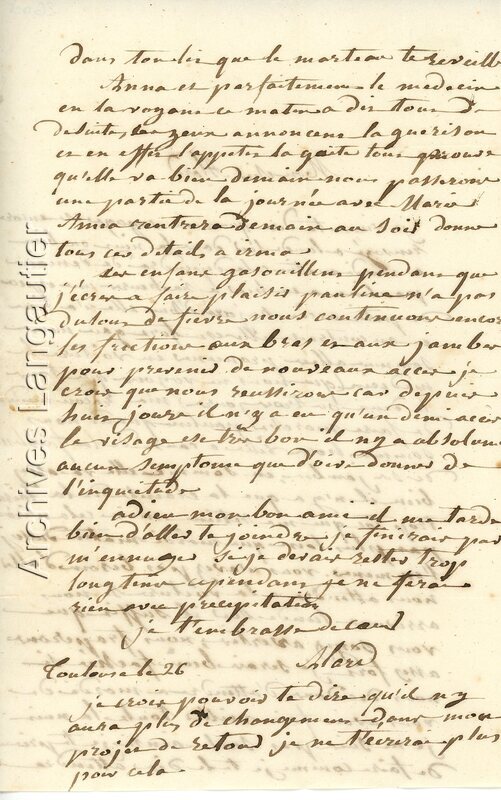 dans ton lit que le marteau te reveille
Anna est parfaitement le medecin
en la voyant ce matin a dit tout de
suite, les yeux annoncent la guerison
et en effet l'appetit la gaité tout prouve
qu'elle va bien demain nous passerons
une partie de la journée avec Marie
Anna rentrera demain au soir donne
tous ces details a irma
les enfans gasouillent pendant que
j'écris a faire plaisir pauline n'a pas
du tout de fievre nous continuons encore
les frictions aux bras et aux jambes
pour prevenir de nouveaux acces je
crois que nous reussirons car depuis
huit jours il n'y a eu qu'un demi acces
le visage est très bon il n'y a absolument
aucun symptome que doive donner de
l'inquietude
adieu mon bon ami il me tarde
bien d'aller te joindre je finirais par
m'ennuyer si je devais rester trop
longtems cependant je ne ferai
rien avec precipitation
je t'embrasse de coeur
Toulouse le 26
je crois pouvoir te dire qu'il n'y
aura plus de changement dans mon
projet de retour je ne t'ecrirai plus
pour cela
Archives Langautier